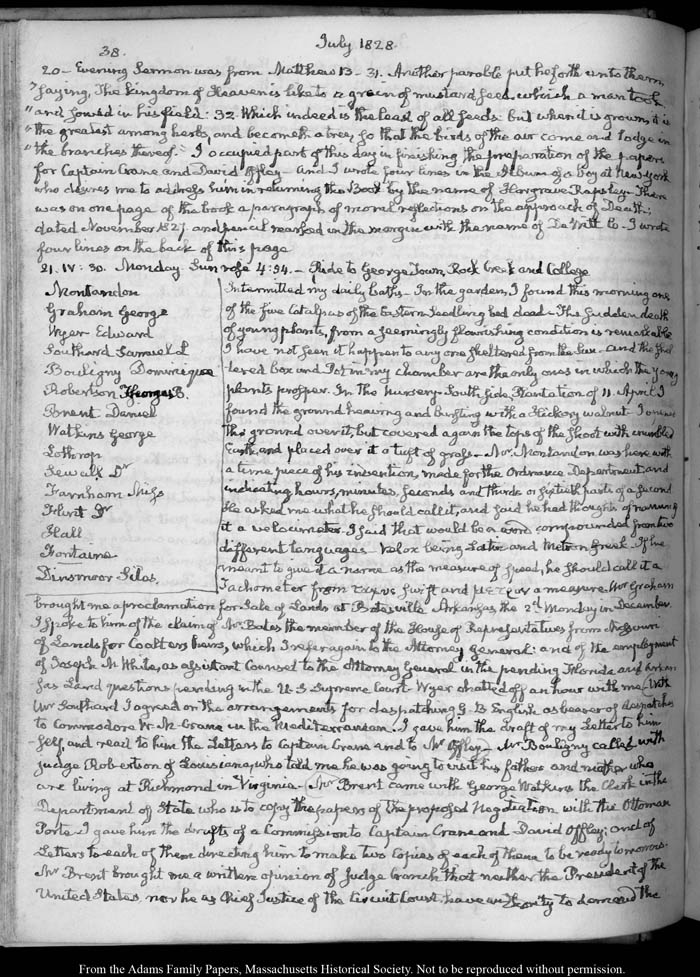 38.
July 1828.
20 – Evening Sermon was from Matthew 13 – 31. Another parable put he forth unto them,
"saying, The kingdom of Heaven is like to a grain of mustard seed, which a man took
"and sowed in his field: 32. Which indeed is the least of all seeds: but when it is grown, it is
"the greatest among herbs, and becometh a tree, so that the birds of the air come and lodge in
"the branches thereof." I occupied part of this day in finishing the preparation of the papers
for Captain Crane and David Offley – And I wrote four lines in the Album of a boy at New York
who desires me to address him in returning the Book by the name of Hargrave Rapsley. There
was on one page of the book a paragraph of moral reflections on the approach of Death;
dated November 1827. and pencil marked in the margin with the name of De Witt C. I wrote
four lines on the back of this page
21. IV: 30. Monday. Sun rose 4:54 – Ride to George Town, Rock Creek and College
Montandon
Graham George
Wyer Edward
Southard Samuel L
Bouligny Dominique
Robertson Thomas B.
Brent Daniel
Watkins George
Lothrop
Sewall Dr
Farnham Miss
Flint Dr
Hall
Fontaine
Dinsmoor Silas
Intermitted my daily baths – In the garden, I found this morning one
of the five Catalpas of the Eastern Seedling bed dead – This sudden death
of young plants, from a seemingly flourishing condition is remarkable
I have not seen it happen to any one sheltered from the Sun – and the shel-
-tered box and Pot in my chamber are the only ones in which the young
plants prosper. In the nursery South side, Plantation of 11. April I
found the ground heaving and bursting with a Hickory walnut – I
the ground over it, but covered again the tops of the shoot with crumbled
Earth, and placed over it a tuft of grass – Mr. Montandon was here with
a time piece of his invention, made for the Ordnance Department and
indicating hours, minutes, seconds and thirds or sixtieth parts of a second
He asked me what he should call it, and said he had thoughts of naming
it a velocimeter. I said that would be a word compounded from two
different languages – Velox being Latin and Metron Greek. If he
meant to give it a name as the measure of speed, he should call it a
Tachometer from ταχυς swift and μετρον a measure. Mr Graham
brought me a proclamation for Sale of Lands at Batesville Arkansas the 2d. Monday in December
I spoke to him of the claim of Mr. Bates the member of the House of Representatives from Missouri
of Lands for Coalters heirs, which I refer again to the Attorney General: and of the employment
of Joseph M. White, as assistant Counsel to the Attorney General in the pending Florida and Arkan
sas Land questions pending in the U.S. Supreme Court. Wyer chatted off an hour with me. With
Mr Southard I agreed on the arrangements for despatching G. B. English as bearer of despatches
to Commodore W. M. Crane in the Mediterranean. I gave him the draft of my Letter to him
self, and read to him the Letters to Captain Crane and to Mr Offley – Mr. Bouligny called with
Judge Robertson of Louisiana, who told me he was going to visit his father and mother who
are living at Richmond in Virginia – Mr Brent came with George Watkins the Clerk in the
Department of State who is to copy the papers of the proposed Negotiation with the Ottoman
Porte. I gave him the drafts of a Commission to Captain Crane and David Offley; and of
Letters to each of them directing him to make two Copies of each of them to be ready tomorrow.
Mr Brent brought me a written opinion of Judge Cranch that neither the President of the
United States, nor he as Chief Justice of the Circuit Court, have authority to demand the
From the Adams Family Papers, Massachusetts Historical Society. Not to be reproduced without permission.